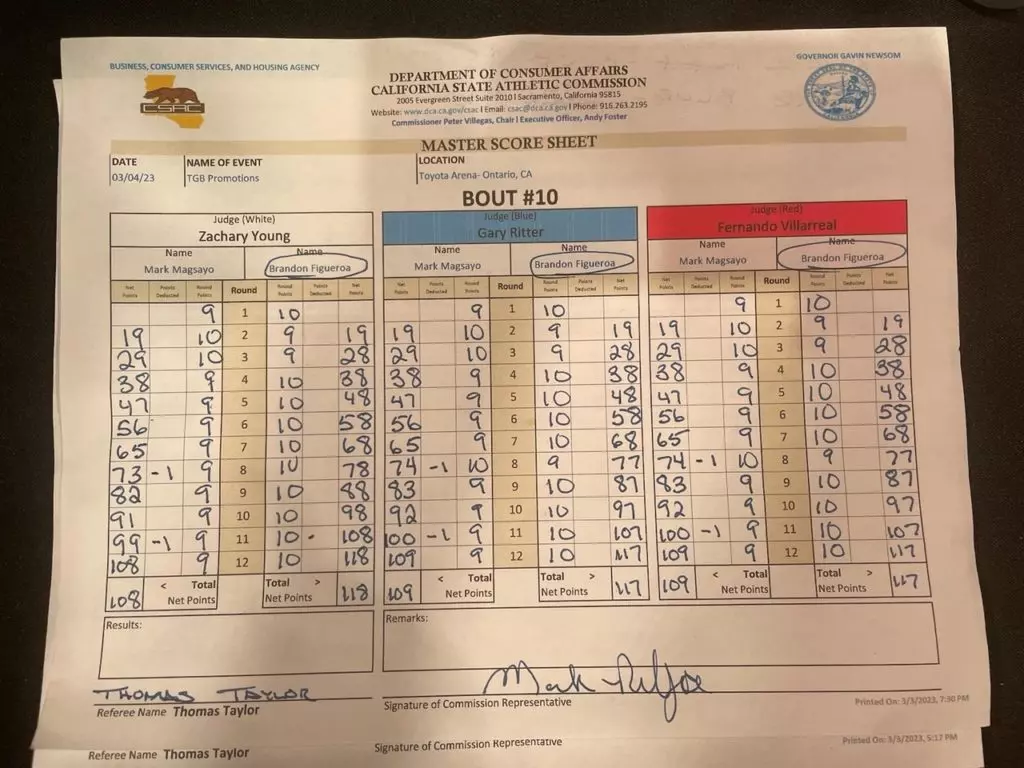 BUSINESS, CONSUMER SERVICES, AND HOUSING AGENCY
GOVERNOR GAVIN NEWSOM
CSAC
DEPARTMENT OF CONSUMER AFFAIRS
CALIFORNIA STATE ATHLETIC COMMISSION
2005 Evergreen Street Suite 2010 | Sacramento, California 95815
Website: www.dca.ca.gov/csac | Email: csac@dca.ca.gov | Phone: 916.263.2195
Commissioner Peter Villegas, Chair | Executive Officer, Andy Foster
MASTER SCORE SHEET
DATE NAME OF EVENT LOCATION
03/04/23 TGB Promotions Toyota Arena- Ontario, CA
BOUT #10
Judge (White) Judge (Blue) Judge (Red)
Zachary Young Gary Ritter Fernando Villarreal
Name Name Name Name Name Name
Mark Magsayo Brandon Figueroa Mark Magsayo Brandon Figueroa Mark Magsayo Brandon Figueroa
Net Points Points Deducted Round Points Round Round Points Points Deducted Net Points Net Points Points Deducted Round Points Round Round Points Points Deducted Net Points Net Points Points Deducted Round Points Round Round Points Points Deducted Net Points
9 1 10 9 1 10 9 1 10
19 10 2 9 19 19 10 2 9 19 19 10 2 9 19
29 10 3 9 28 29 10 3 9 28 29 10 3 9 28
38 9 4 10 38 38 9 4 10 38 38 9 4 10 38
47 9 5 10 48 47 9 5 10 48 47 9 5 10 48
56 9 6 10 58 56 9 6 10 58 56 9 6 10 58
65 9 7 10 68 65 9 7 10 68 65 9 7 10 68
73 -1 9 8 10 78 74 -1 10 8 9 77 74 -1 10 8 9 77
82 9 9 10 88 83 9 9 10 87 83 9 9 10 87
91 9 10 10 98 92 9 10 10 97 92 9 10 10 97
99 -1 9 11 10 - 108 100 -1 9 11 10 107 100 -1 9 11 10 107
108 9 12 10 118 109 9 12 10 117 109 9 12 10 117
108 < Total Net Points Total > Net Points 118 109 < Total Net Points Total > Net Points 117 109 < Total Net Points Total > Net Points 117
Results: Remarks:
THOMAS TAYLOR
Referee Name Thomas Taylor Signature of Commission Representative Printed On: 3/3/2023, 7:30 PM
Referee Name Thomas Taylor Signature of Commission Representative Printed On: 3/3/2023, 5:17 PM